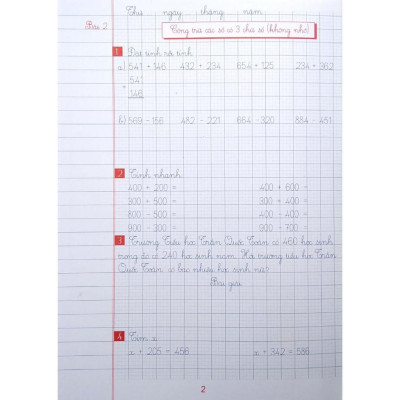 Thứ ngày tháng năm
Bài 2
Cộng trừ các số có 3 chữ số (không nhớ)
1 Đặt tính rồi tính
a) 541 + 146 432 + 234 654 + 125 234 + 362
541
+
146
b) 569 - 156 482 - 221 654 - 320 884 - 451
2 Tính nhanh
400 + 200 = 400 + 600 =
300 + 500 = 300 + 400 =
800 - 500 = 400 - 400 =
900 - 300 = 900 - 700 =
3 Trường Tiểu học Trần Quốc Toản có 460 học sinh,
trong đó có 240 học sinh nam. Hỏi trường tiểu học Trần
Quốc Toản có bao nhiêu học sinh nữ?
Bài giải
4 Tìm x
x + 205 = 456 x + 342 = 586
2